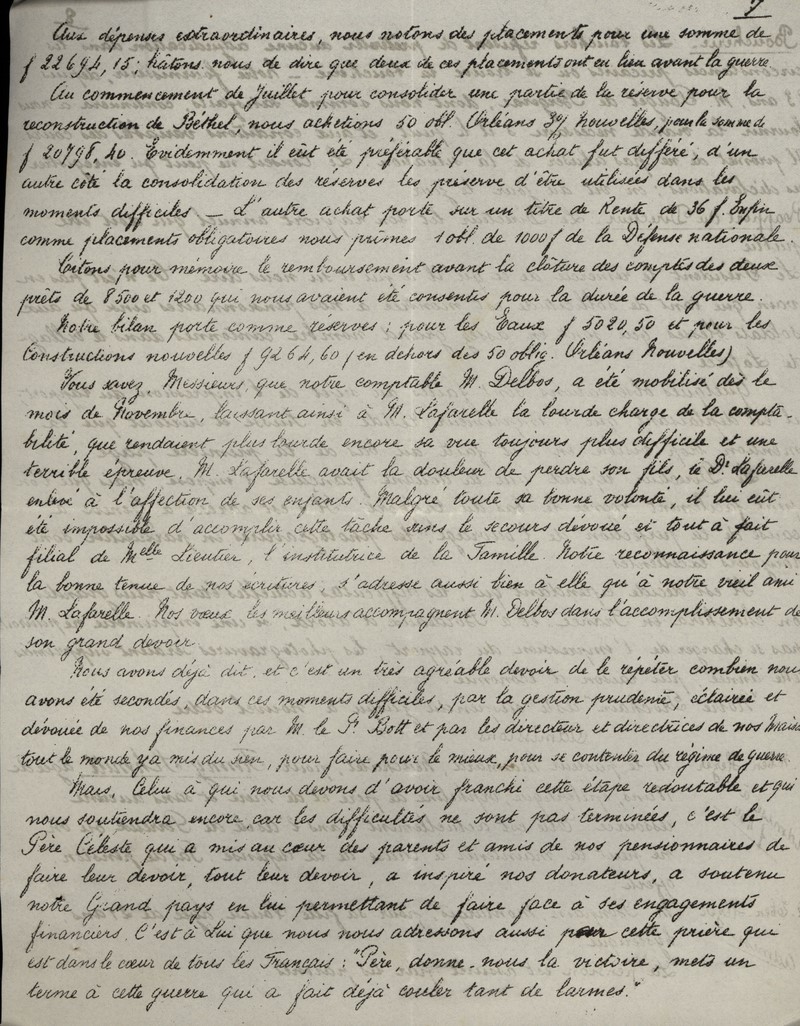 7
Aux dépenses extraordinaires, nous notons des placements pour une somme de
f 22694,15; hâtons nous de dire que deux de ces placements ont eu lieu avant la guerre.
Au commencement de Juillet pour consolider une partie de la réserve pour la
reconstruction de Béthel, nous achetions 50 obl. Orléans 3% nouvelles, pour la somme de
f 20798,40. Evidemment il eût été préférable que cet achat fut différé, d'un
autre côté la consolidation des réserves les préserve d'être utilisées dans les
moments difficiles _ L'autre achat porte sur un titre de Rente de 36 f. Enfin
comme placements obligatoires nous prîmes 1 obl. de 1000 f de la Défense nationale.
Citons pour mémoire le remboursement avant la clôture des comptes des deux
prêts de 8500 et 1200 qui nous avaient été consentis pour la durée de la guerre.
Notre bilan porte comme réserves: pour les Eaux f 5020,50 et pour les
Constructions nouvelles f 9264,60 (en dehors des 50 oblig. Orléans Nouvelles)
Vous savez, Messieurs, que notre comptable M. Delbos, a été mobilisé dès le
mois de Novembre, laissant ainsi à M. Lafarelle la lourde charge de la compta-
bilité, que rendaient plus lourde encore sa vue toujours plus difficile et une
terrible épreuve. M. Lafarelle avait la douleur de perdre son fils, le Dr Lafarelle
enlevé à l'affection de ses enfants. Malgré toute sa bonne volonté, il lui eût
été impossible d'accomplir cette tâche sans le secours dévoué et tout à fait
filial de Melle Lieutier, l'institutrice de la Famille. Notre reconnaissance pour
la bonne tenue de nos écritures, s'adresse aussi bien à elle qu'à notre vieil ami
M. Lafarelle. Nos vœux les meilleurs accompagnent M. Delbos dans l'accomplissement de
son grand devoir.
Nous avons déjà dit, et c'est un très agréable devoir de le répéter combien nous
avons été secondés, dans ces moments difficiles, par la gestion prudente, éclairée et
dévouée de nos finances par M. le Pr Bott et par les directeur et directrices de nos Mais
tout le monde y a mis du sien, pour faire pour le mieux, pour se contenter du régime de guerre.
Mais, Celui à qui nous devons d'avoir franchi cette étape redoutable et qui
nous soutiendra encore, car les difficultés ne sont pas terminées, c'est le
Père Céleste qui a mis au cœur des parents et amis de nos pensionnaires de
faire leur devoir, tout leur devoir, a inspiré nos donateurs, a soutenu
notre Grand pays en lui permettant de faire face à ses engagements
financiers. C'est à Lui que nous nous adressons aussi pour cette prière qui
est dans le cœur de tous les Français: "Père, donne-nous la victoire, mets un
terme à cette guerre qui a fait déjà couler tant de larmes."